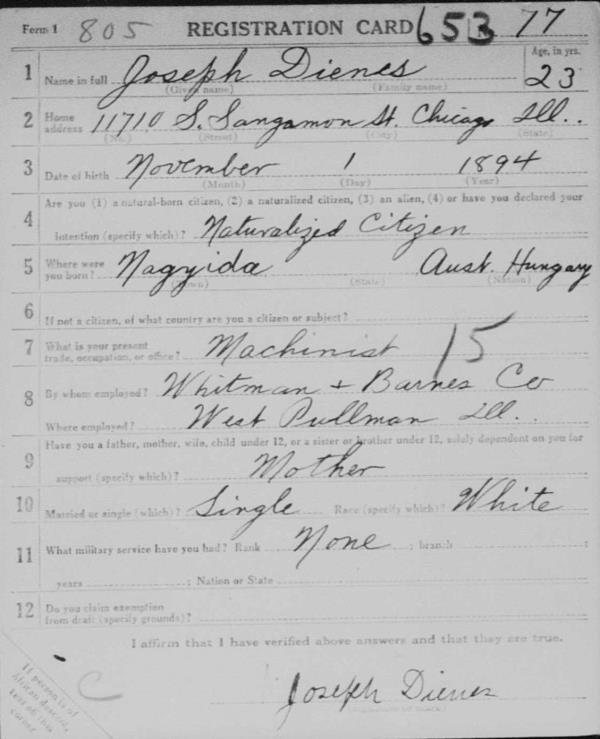 Form 1 805 REGISTRATION CARD 653 77
1 Name in full Joseph Dienes Age, in yrs. 23
(Given name) (Family name)
2 Home address 11710 S. Sangamon St. Chicago Ill..
(No.) (Street) (City) (State)
3 Date of birth November 1 1894
(Month) (Day) (Year)
Are you (1) a natural-born citizen, (2) a naturalized citizen, (3) an alien, (4) or have you declared your
4 intention (specify which)? Naturalized Citizen
5 Where were you born? Nagyida Aust. Hungary
(Town) (State) (Nation)
6 If not a citizen, of what country are you a citizen or subject?
7 What is your present trade, occupation, or office? Machinist 15
8 By whom employed? Whitman + Barnes Co
Where employed? West Pullman Ill..
9 Have you a father, mother, wife, child under 12, or a sister or brother under 12, solely dependent on you for
support (specify which)? Mother
10 Married or single (which)? Single Race (specify which)? White
11 What military service have you had? Rank None ; branch ;
years ; Nation or State
12 Do you claim exemption from draft (specify grounds)?
I affirm that I have verified above answers and that they are true.
C
If person is of
African descent,
tear off this
corner
Joseph Dienes